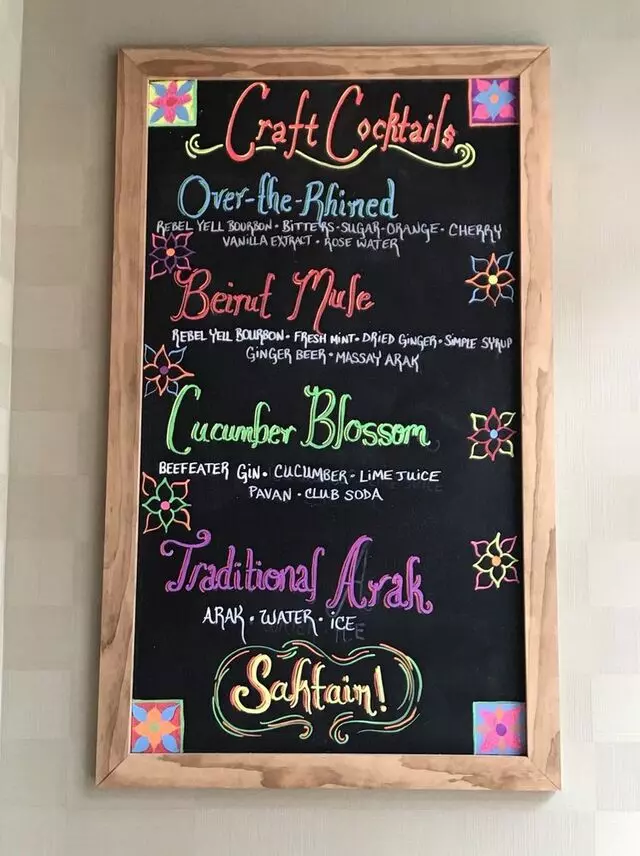 Craft Cocktails
Over-the-Rhined
REBEL YELL BOURBON • BITTERS • SUGAR • ORANGE • CHERRY
VANILLA EXTRACT • ROSE WATER
Beirut Mule
REBEL YELL BOURBON • FRESH MINT • DRIED GINGER • SIMPLE SYRUP
GINGER BEER • MASSAY ARAK
Cucumber Blossom
BEEFEATER GIN • CUCUMBER • LIME JUICE
PAVAN • CLUB SODA
Traditional Arak
ARAK • WATER • ICE
Sahtain!